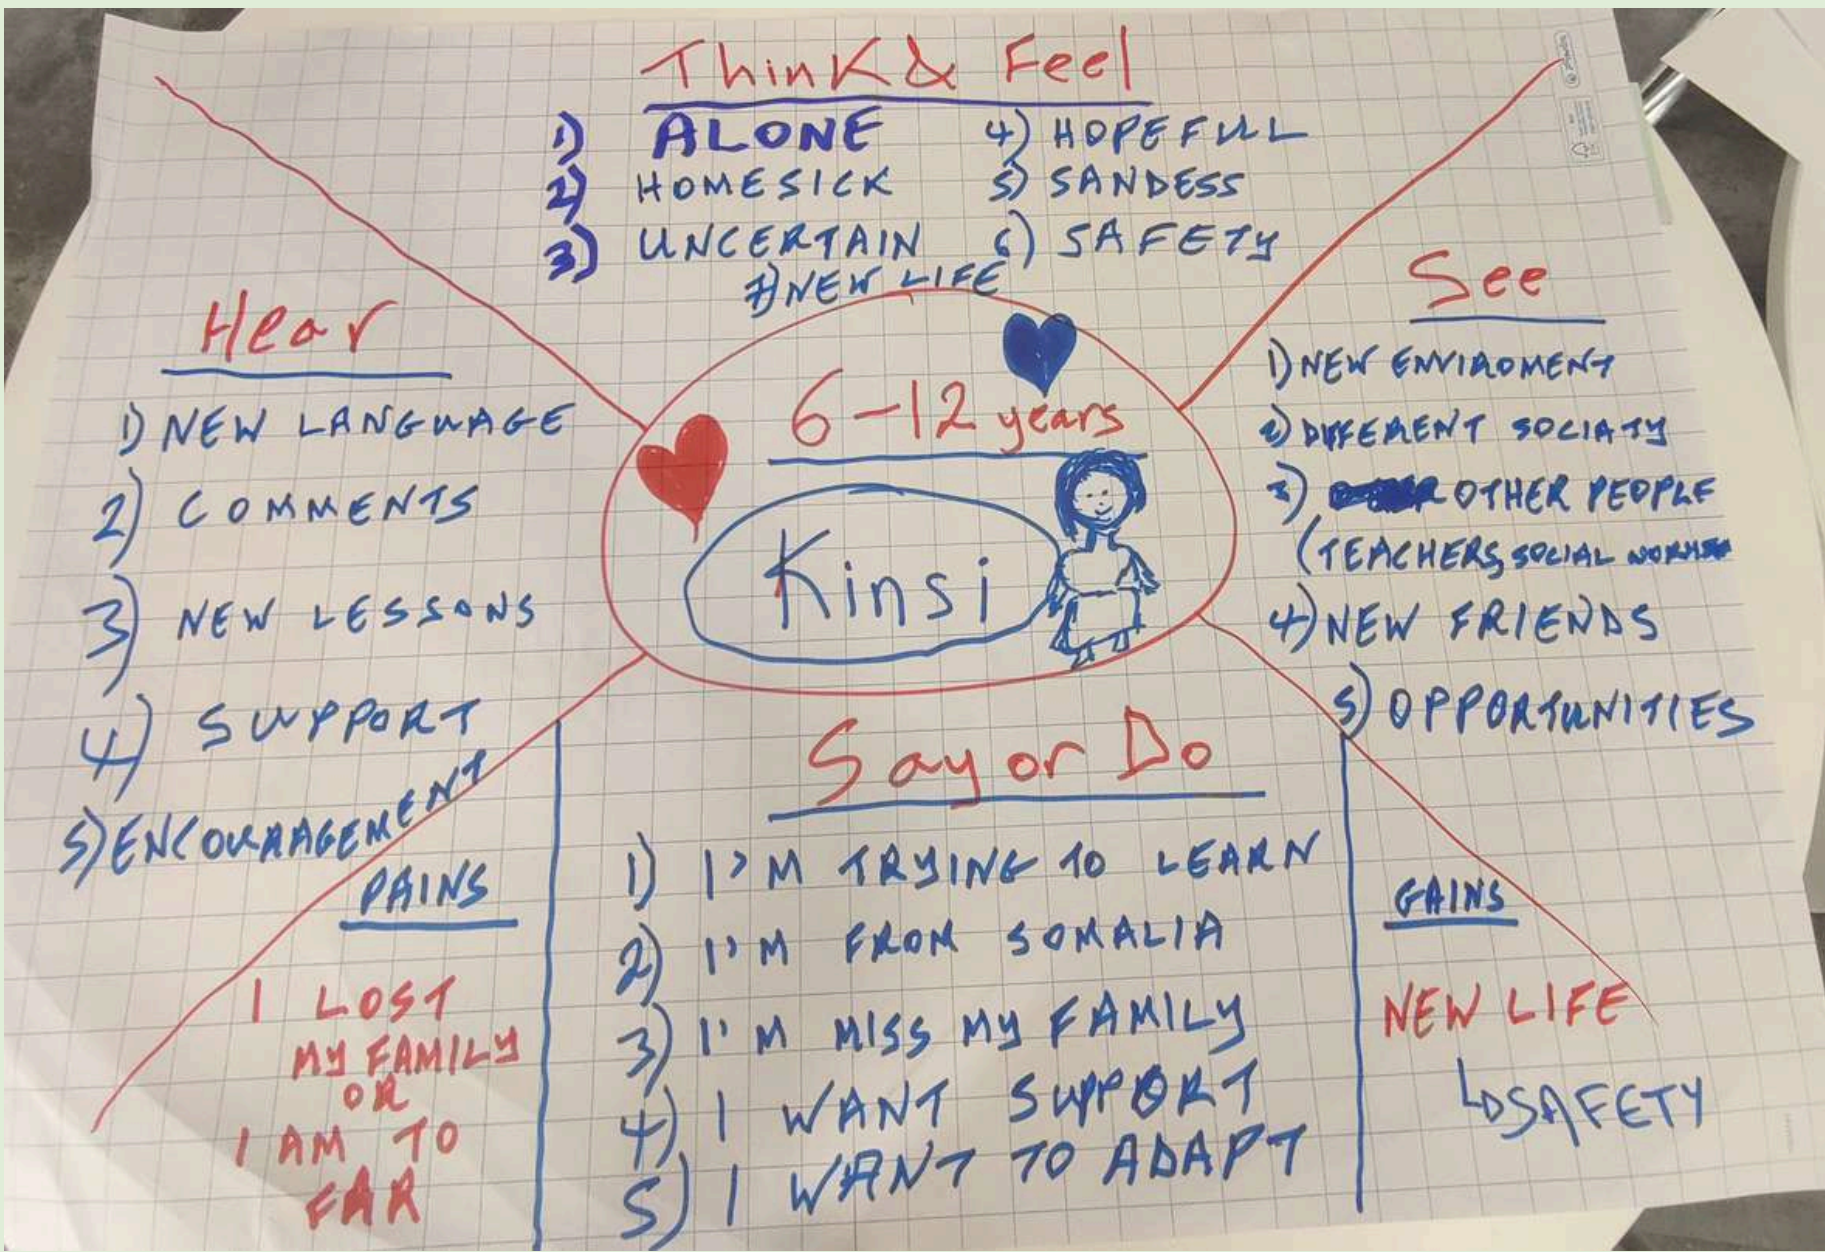 Think & Feel
1) ALONE
2) HOMESICK
3) UNCERTAIN
4) HOPEFULL
5) SANDESS
6) SAFETY
7) NEW LIFE
Hear
1) NEW LANGUAGE
2) COMMENTS
3) NEW LESSONS
4) SUPPORT
5) ENCOURAAGEMENT
6-12 years
Kinsi
See
1) NEW ENVIROMENT
2) DIFFERENT SOCIATY
3) OTHER PEOPLE
(TEACHERS, SOCIAL
4) NEW FRIENDS
5) OPPORTUNITIES
PAINS
I LOST
MY FAMILY
OR
I AM TO
FAR
Say or Do
1) I'M TRYING TO LEARN
2) I'M FROM SOMALIA
3) I'M MISS MY FAMILY
4) I WANT SUPPORT
5) I WANT TO ADAPT
GAINS
NEW LIFE
↳ SAFETY